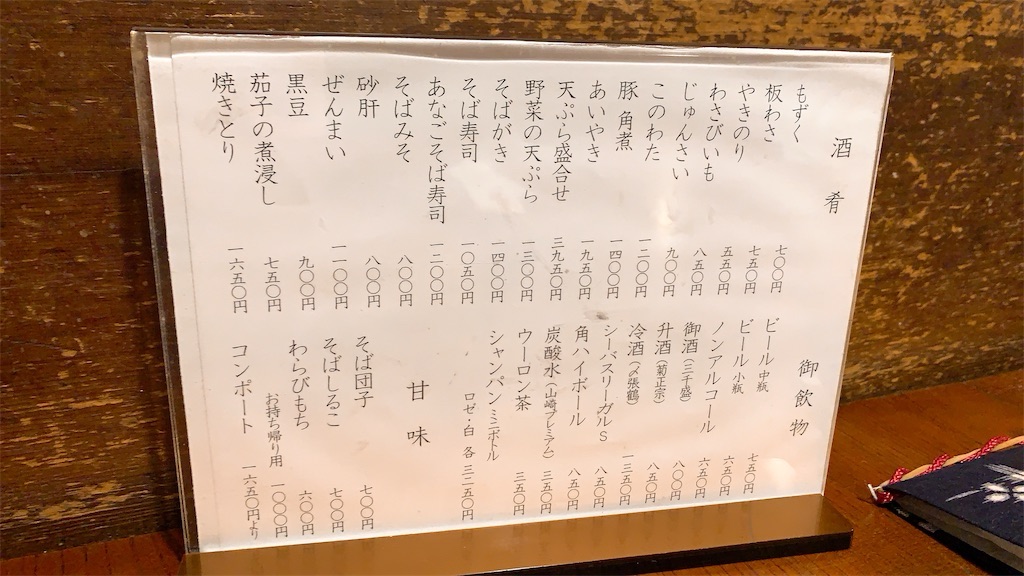 酒肴
もずく 七〇〇円
板わさ 七五〇円
やきのり 五五〇円
わさびいも 八五〇円
じゅんさい 九〇〇円
このわた 一二〇〇円
豚角煮 一四〇〇円
あいやき 一九五〇円
天ぷら盛合せ 三九五〇円
野菜の天ぷら 一三〇〇円
そばがき 一四〇〇円
そば寿司 一〇五〇円
あなごそば寿司 一二〇〇円
そばみそ 八〇〇円
砂肝 八〇〇円
ぜんまい 一一〇〇円
黒豆 九〇〇円
茄子の煮浸し 七五〇円
焼きとり 一六五〇円
御飲物
ビール 中瓶 七五〇円
ビール 小瓶 六五〇円
ノンアルコール 六五〇円
御酒(三千盛) 八〇〇円
升酒(菊正宗) 八五〇円
冷酒(〆張鶴) 一三五〇円
シーバスリーガルS 八五〇円
角ハイボール 八五〇円
炭酸水(山崎プレミアム) 三五〇円
ウーロン茶 三五〇円
シャンパン ミニボトル
ロゼ・白 各 三二五〇円
甘味
そば団子 七〇〇円
そばしるこ 七〇〇円
わらびもち 六〇〇円
お持ち帰り用 一〇〇〇円
コンポート 一六五〇円より